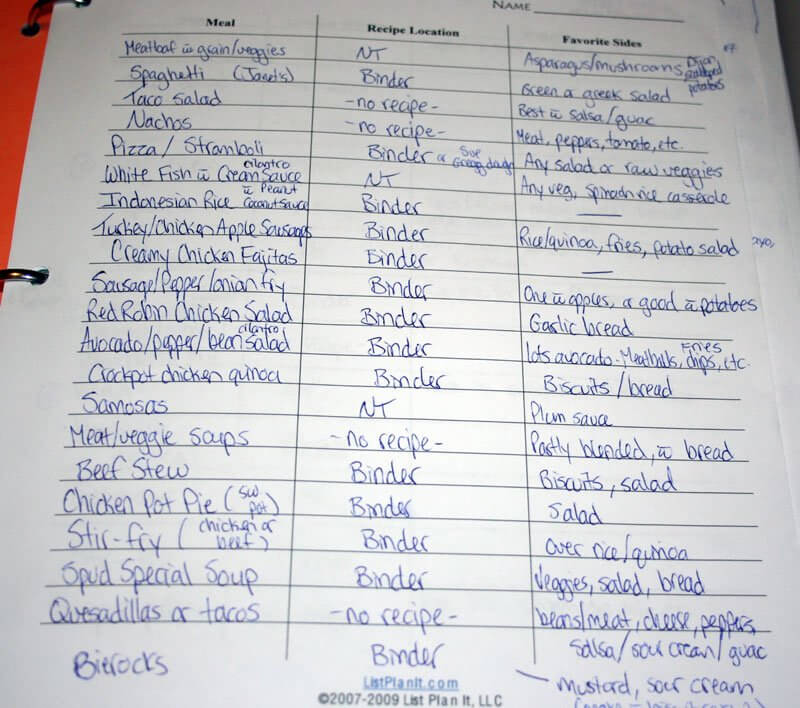 NAME
Meal Recipe Location Favorite Sides
Meatloaf w̄ grain/veggies NT Asparagus/mushrooms, potatoes
Spaghetti (Jared's) Binder Green or greek salad
Taco Salad -no recipe- Best w̄ salsa/guac
Nachos -no recipe- Meat, peppers, tomato, etc.
Pizza / Stramboli Binder or Sue Gregg dough Any salad or raw veggies
White Fish w̄ cilantro Cream Sauce NT Any veg, spinach rice casserole
Indonesian Rice w̄ Peanut Coconut sauce Binder —
Turkey/Chicken Apple Sausages Binder Rice/quinoa, fries, potato salad
Creamy Chicken Fajitas Binder —
Sausage/Pepper/onion fry Binder One w̄ apples, or good w̄ potatoes
Red Robin Chicken Salad Binder Garlic bread
Avocado/pepper/bean cilantro salad Binder lots avocado. Meatballs, Fries chips, etc.
Crockpot chicken quinoa Binder Biscuits / bread
Samosas NT Plum sauce
Meat/veggie soups -no recipe- Partly blended, w̄ bread
Beef Stew Binder Biscuits, salad
Chicken Pot Pie (sw pot) Binder Salad
Stir-fry (chicken or beef) Binder Over rice/quinoa
Spud Special Soup Binder Veggies, salad, bread
Quesadillas or tacos -no recipe- beans/meat, cheese, peppers,
salsa/sour cream/guac
Bierocks Binder — mustard, sour cream
ListPlanIt.com
©2007-2009 List Plan It, LLC